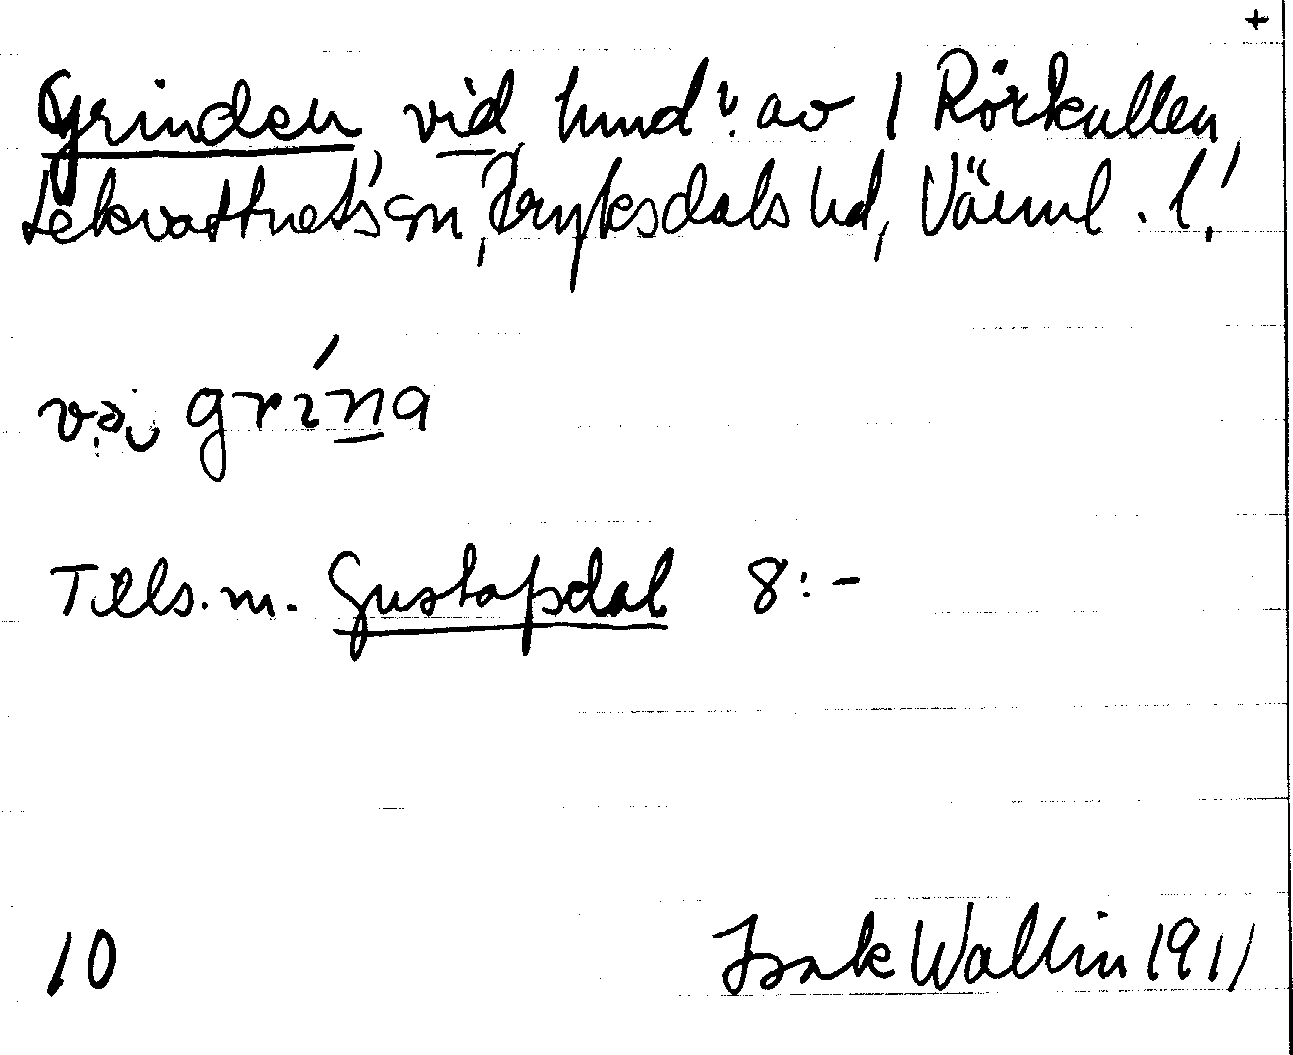 +
Grinden, vid, hmd av 1 Rörkullen,
Lekvattnets sn, Fryksdals hd, Värml. l.
grína
Tills. m. Gustafsdal 8:-
10 Isak Wallin 1911